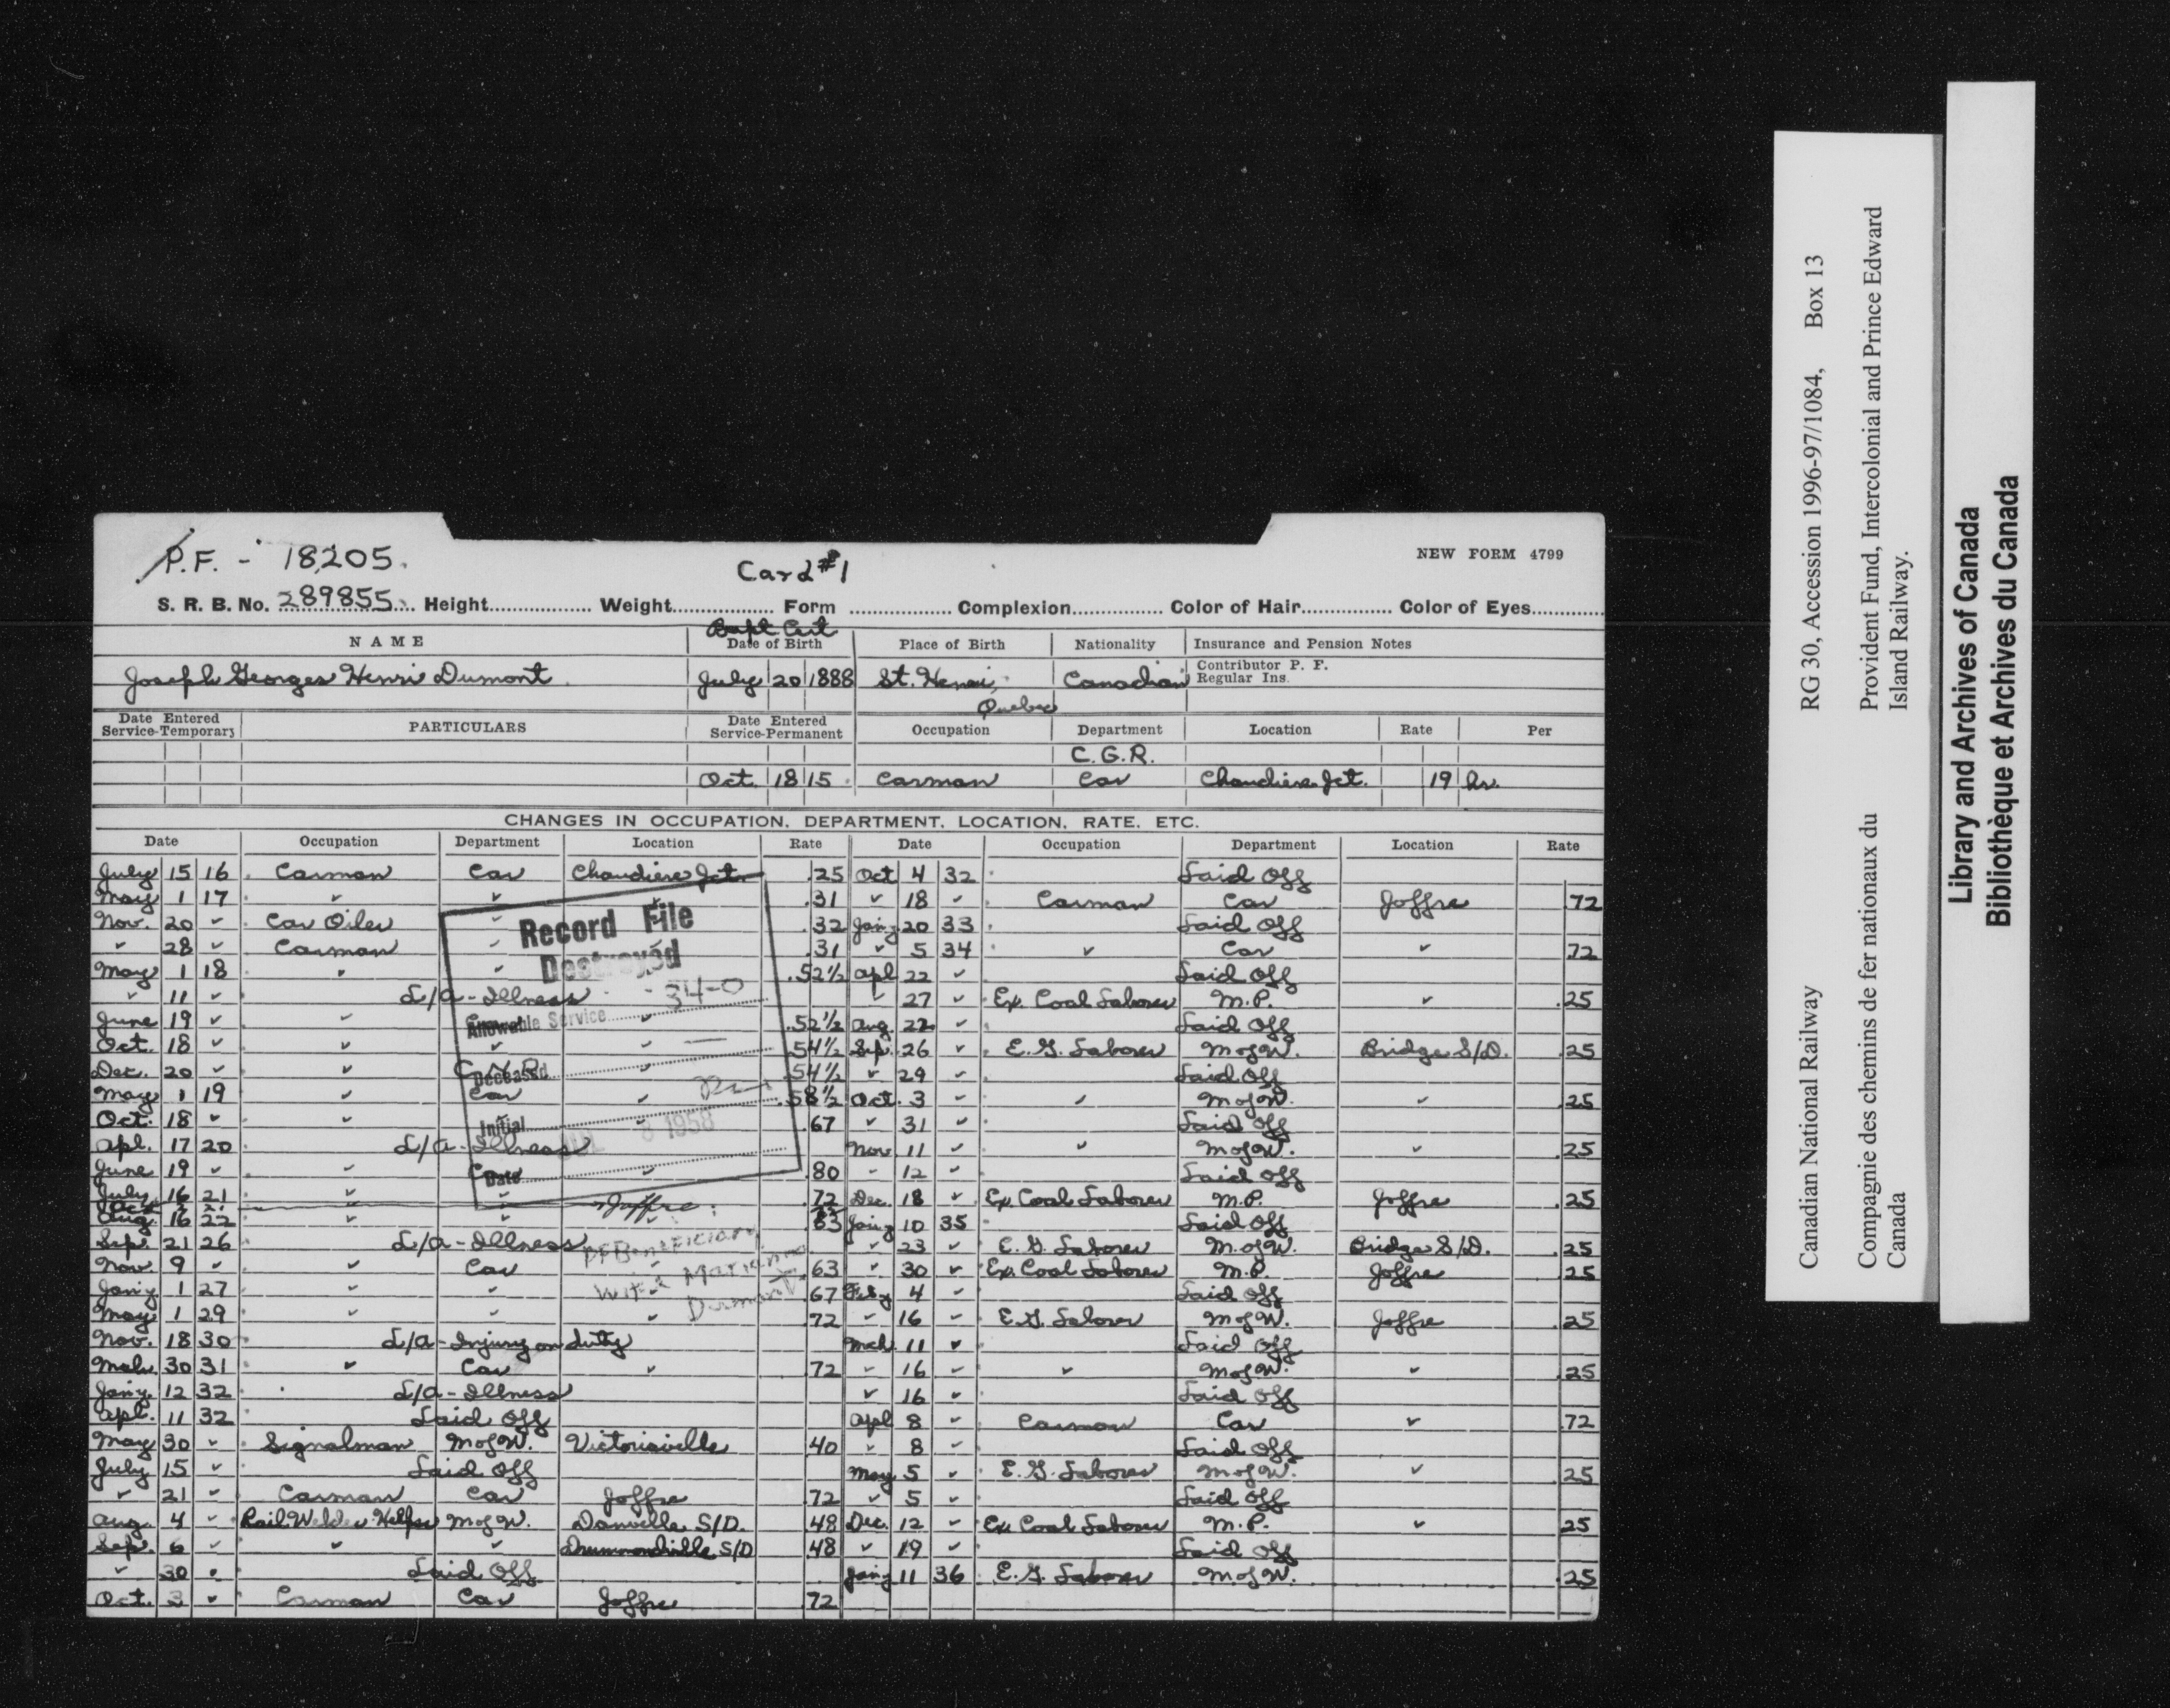 P.F. - 18205.
Card #1
NEW FORM 4799
S. R. B. No. 289855 Height Weight Form Complexion Color of Hair Color of Eyes
Bapt Cert
NAME Date of Birth Place of Birth Nationality Insurance and Pension Notes
Joseph Georges Henri Dumont July 20 1888 St. Henri, Quebec Canadian Contributor P. F.
Regular Ins.
Date Entered Service-Temporary PARTICULARS Date Entered Service-Permanent Occupation Department Location Rate Per
C.G.R.
Oct. 18 15 Carman Car Chaudiere Jct. 19 hr.
CHANGES IN OCCUPATION, DEPARTMENT, LOCATION, RATE, ETC.
Date Occupation Department Location Rate Date Occupation Department Location Rate
July 15 16 Carman Car Chaudiere Jct. .25 Oct 4 32 Laid Off
May 1 17 ✓ ✓ .31 ✓ 18 ✓ Carman Car Joffre .72
Nov. 20 ✓ Car Oiler .32 Jan'y 20 33 Laid Off
✓ 28 ✓ Carman .31 ✓ 5 34 ✓ Car ✓ .72
May 1 18 ✓ ✓ .52½ Apl 22 ✓ Laid Off
✓ 11 ✓ L/A - Illness ✓ 27 ✓ Ex. Coal Laborer M.P. ✓ .25
June 19 ✓ ✓ ✓ .52½ Aug. 22 ✓ Laid Off
Oct. 18 ✓ ✓ ✓ ✓ .54½ Sep. 26 ✓ E.G. Laborer M of W. Bridge S/D. .25
Dec. 20 ✓ ✓ C.N.R. ✓ .54½ ✓ 29 ✓ Laid Off
May 1 19 ✓ Car ✓ .58½ Oct. 3 ✓ ✓ M of W. ✓ .25
Oct. 18 ✓ ✓ ✓ .67 ✓ 31 ✓ Laid Off
Apl. 17 20 L/A - Illness Nov. 11 ✓ ✓ M of W. ✓ .25
June 19 ✓ ✓ ✓ .80 ✓ 12 ✓ Laid Off
July 16 21 ✓ ✓ .72 Dec. 18 ✓ Ex. Coal Laborer M.P. Joffre .25
Joffre
Aug. 16 22 ✓ ✓ ✓ .63 Jan'y 10 35 Laid Off
Sep. 21 26 L/A - Illness ✓ 23 ✓ E.G. Laborer M. of W. Bridge S/D. .25
Nov. 9 ✓ ✓ Car .63 ✓ 30 ✓ Ex. Coal Laborer M.P. Joffre .25
Jan'y 1 27 ✓ ✓ .67 Feb'y 4 ✓ Laid Off
May 1 29 ✓ ✓ ✓ .72 ✓ 16 ✓ E.G. Laborer M of W. Joffre .25
Nov. 18 30 L/A - Injury on duty Mch. 11 ✓ Laid Off
Mch. 30 31 ✓ Car ✓ .72 ✓ 16 ✓ ✓ M of W. ✓ .25
Jan'y. 12 32 L/A - Illness ✓ 16 ✓ Laid Off
Apl. 11 32 Laid Off Apl 8 ✓ Carman Car ✓ .72
May 30 ✓ Signalman M of W. Victoriaville .40 ✓ 8 ✓ Laid Off
July 15 ✓ Laid Off May 5 ✓ E.G. Laborer M of W. ✓ .25
✓ 21 ✓ Carman Car Joffre .72 ✓ 5 ✓ Laid Off
Aug. 4 ✓ Rail Welder Helper M of W. Danville S/D. .48 Dec. 12 ✓ Ex. Coal Laborer M.P. ✓ .25
Sep. 6 ✓ ✓ ✓ Drummondville S/D .48 ✓ 19 ✓ Laid Off
✓ 30 ✓ Laid Off Jan'y 11 36 E.G. Laborer M of W. .25
Oct. 3 ✓ Carman Car Joffre .72
Record File
Destroyed
34-0
Allowable Service
Deceased
Initial
8 1958
Date
PF Beneficiary
Wife Marian
Dumont
Canadian National Railway RG 30, Accession 1996-97/1084, Box 13
Compagnie des chemins de fer nationaux du Canada
Provident Fund, Intercolonial and Prince Edward Island Railway.
Library and Archives of Canada
Bibliothèque et Archives du Canada